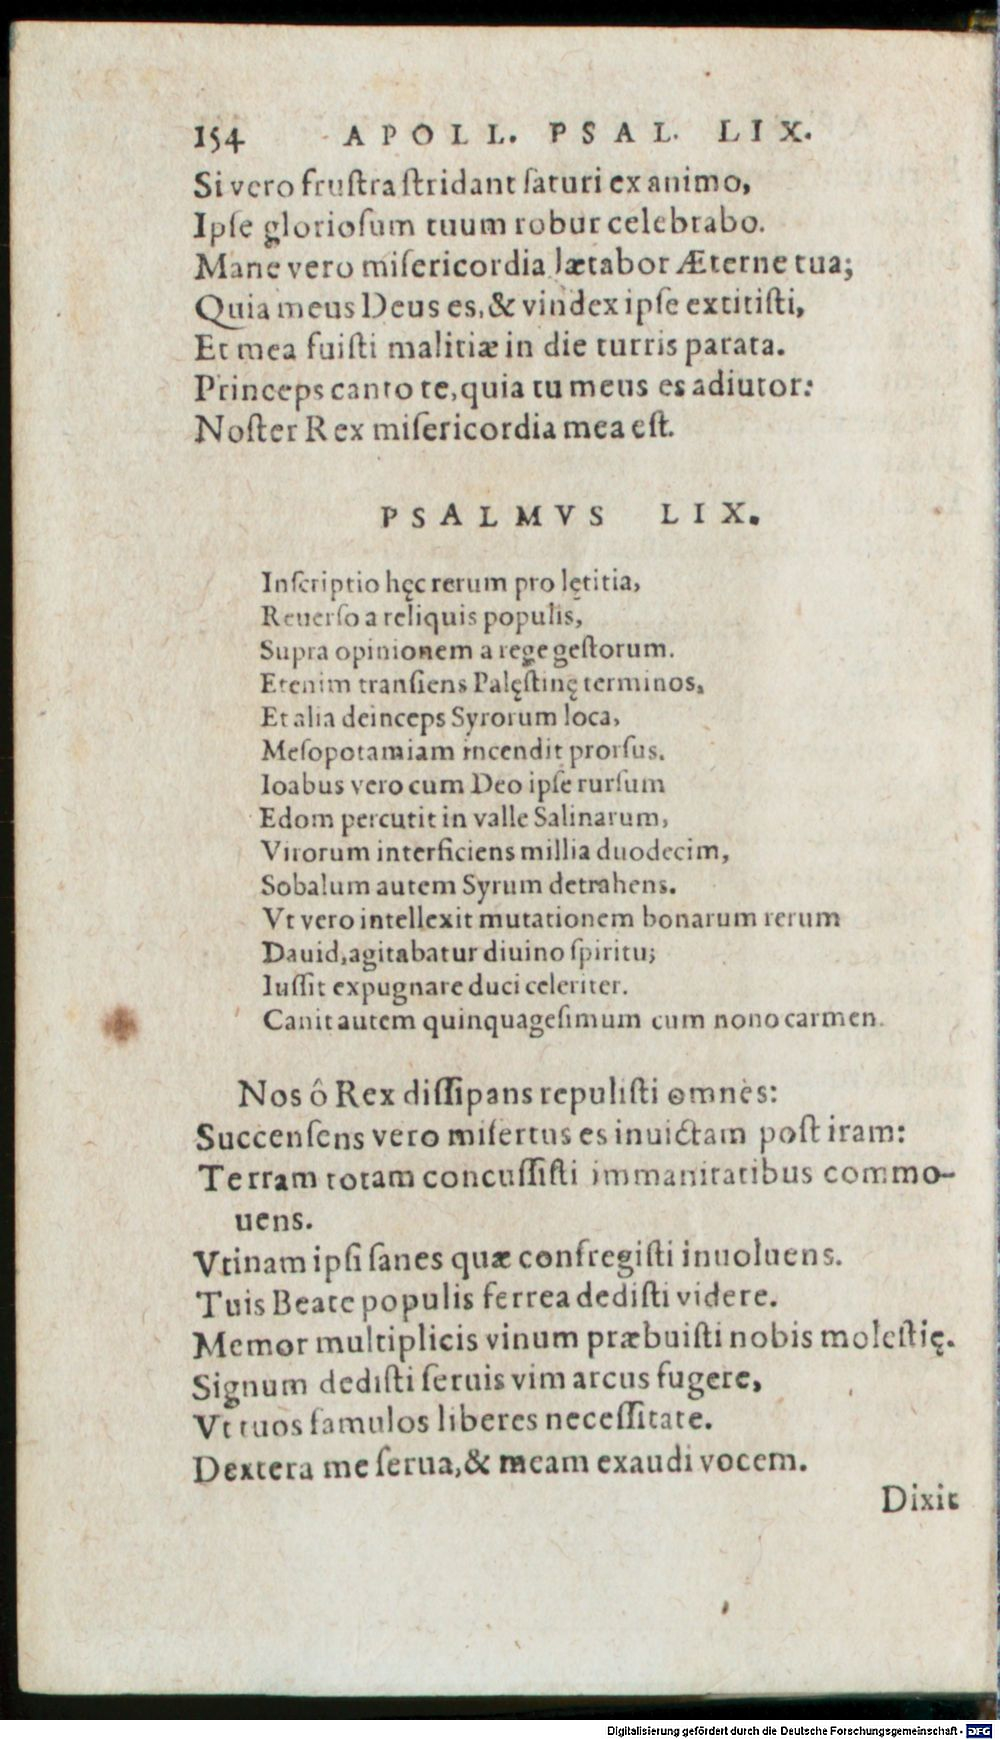 154 APOLL. PSAL. LIX.
Si vero fruſtra ſtridant ſaturi ex animo,
Ipſe glorioſum tuum robur celebrabo.
Mane vero miſericordia lætabor Æterne tua;
Quia meus Deus es, & vindex ipſe extitiſti,
Et mea fuiſti malitiæ in die turris parata.
Princeps canto te, quia tu meus es adiutor:
Noſter Rex miſericordia mea eſt.
PSALMVS LIX.
Inſcriptio hęc rerum pro lętitia,
Reuerſo a reliquis populis,
Supra opinionem a rege geſtorum.
Etenim tranſiens Palęſtinę terminos,
Et alia deinceps Syrorum loca,
Meſopotamiam incendit prorſus.
Ioabus vero cum Deo ipſe rurſum
Edom percutit in valle Salinarum,
Virorum interficiens millia duodecim,
Sobalum autem Syrum detrahens.
Vt vero intellexit mutationem bonarum rerum
Dauid, agitabatur diuino ſpiritu;
Iuſſit expugnare duci celeriter.
Canit autem quinquageſimum cum nono carmen.
Nos ô Rex diſſipans repuliſti omnes:
Succenſens vero miſertus es inuictam poſt iram:
Terram totam concuſſiſti immanitatibus commo-
uens.
Vtinam ipſi ſanes quæ confregiſti inuoluens.
Tuis Beate populis ferrea dediſti videre.
Memor multiplicis vinum præbuiſti nobis moleſtię.
Signum dediſti ſeruis vim arcus fugere,
Vt tuos famulos liberes neceſſitate.
Dextera me ſerua, & meam exaudi vocem.
Dixit
Digitalisierung gefördert durch die Deutsche Forschungsgemeinschaft - DFG